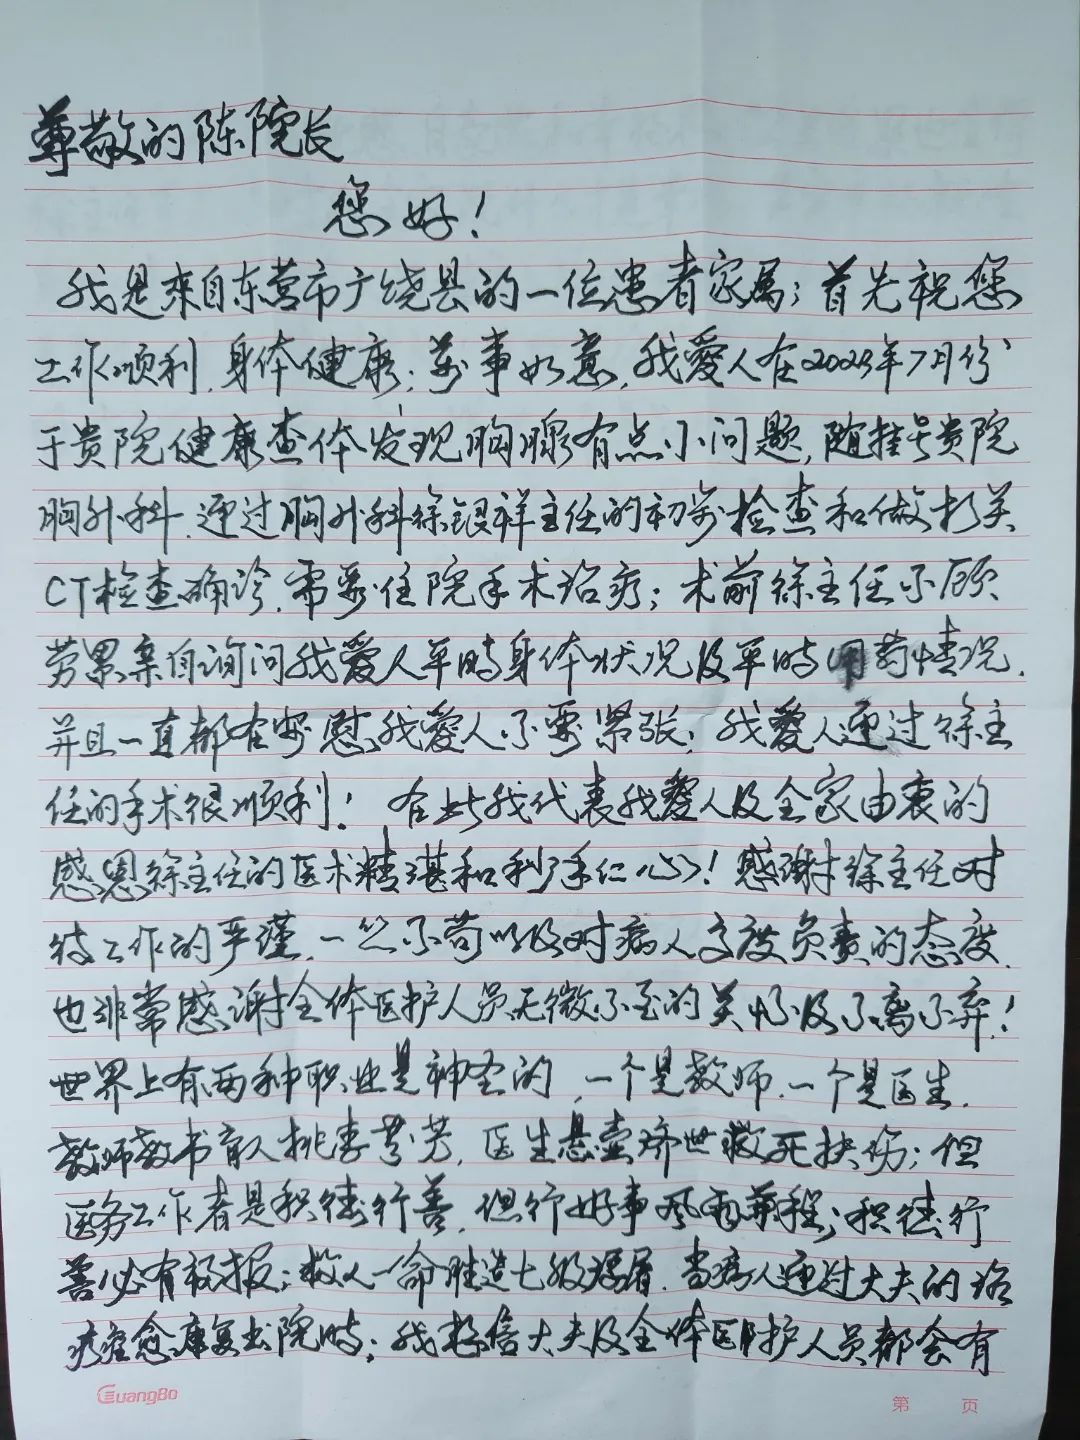 尊敬的陈院长
您好!
我是来自东营市广饶县的一位患者家属;首先祝您
工作顺利,身体健康;万事如意,我爱人在2025年7月份
于贵院健康查体发现胸腺有点小问题,随挂号贵院
胸外科.通过胸外科徐银祥主任的初步检查和做相关
CT检查确诊,需要住院手术治疗;术前徐主任不顾
劳累亲自询问我爱人平时身体状况及平时用药情况.
并且一直都在安慰我爱人不要紧张;我爱人通过徐主
任的手术很顺利!在此我代表我爱人及全家由衷的
感恩徐主任的医术精湛和 仁心!感谢徐主任对
待工作的严谨,一丝不苟以及对病人高度负责的态度.
也非常感谢全体医护人员无微不至的关怀及不离不弃!
世界上有两种职业是神圣的,一个是教师.一个是医生.
教师教书育人桃李芬芳,医生悬壶济世救死扶伤;但
医务工作者是积德行善,但行好事风雨兼程;积德行
善必有福报;救人一命胜造七级浮屠.当病人通过大夫的治
疗痊愈康复出院时;我相信大夫及全体医护人员都会有
GuangBo
第 页